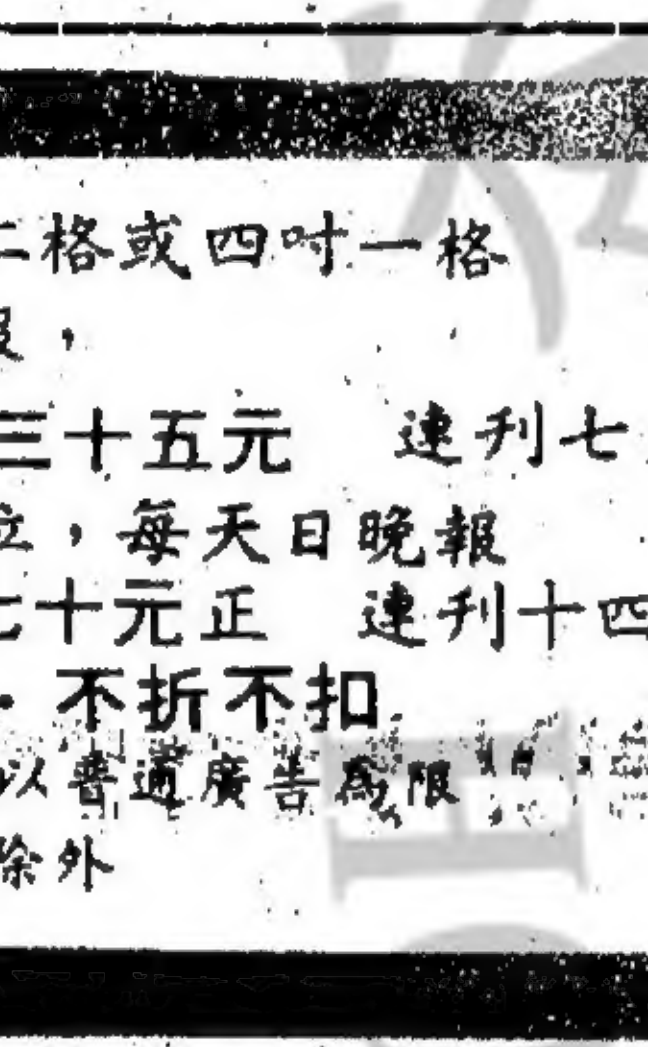 二格或四吋一格
報，
三十五元　連刊七
位，每天日晚報
七十元正　連刊十四
．不折不扣
以普通廣告為限
除外